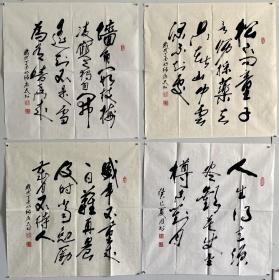 墙角数枝梅
凌寒独自开
遥知不是雪
为有暗香来
松下问童子
言师采药去
只在此山中云
深不知处
盛年不重来
一日难再晨
及时当勉励
岁月不待人
人生得意须
尽欢莫使金
樽空对月